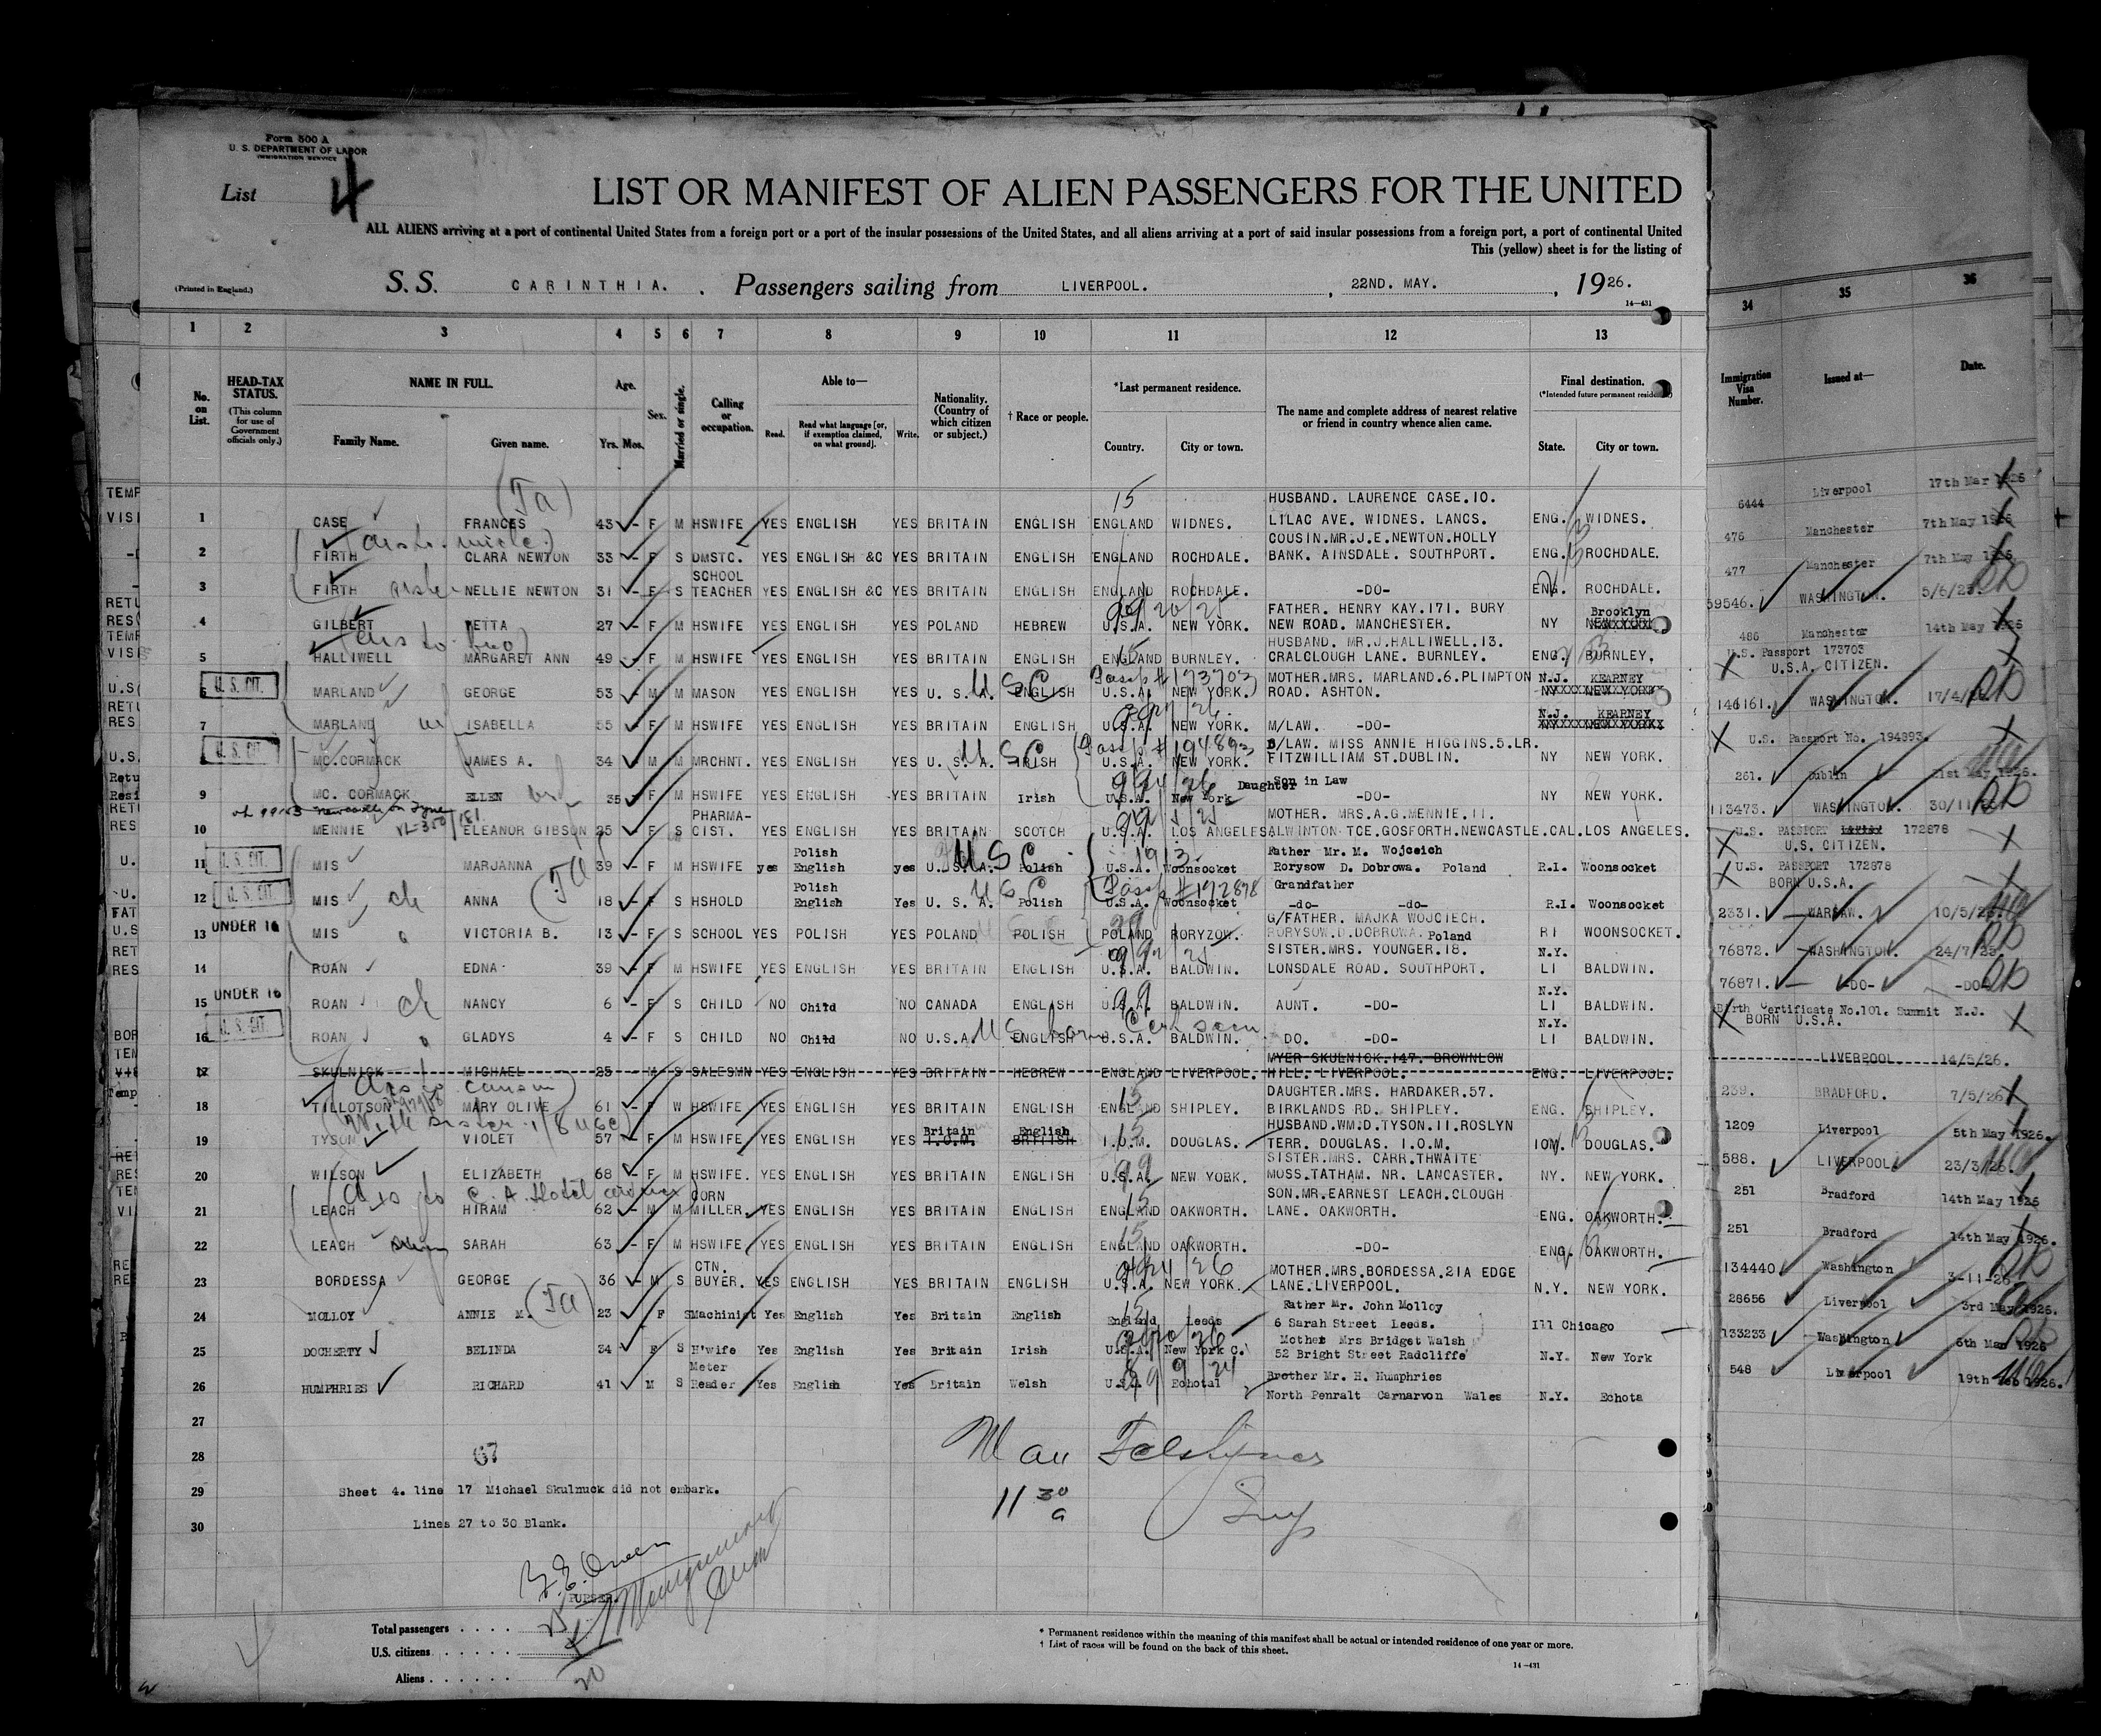 Form 500 A
U. S. DEPARTMENT OF LABOR
IMMIGRATION SERVICE
List 4
LIST OR MANIFEST OF ALIEN PASSENGERS FOR THE UNITED
ALL ALIENS arriving at a port of continental United States from a foreign port or a port of the insular possessions of the United States, and all aliens arriving at a port of said insular possessions from a foreign port, a port of continental United
This (yellow) sheet is for the listing of
(Printed in England.)
S. S. CARINTHIA. Passengers sailing from LIVERPOOL. , 22ND. MAY. , 1926.
14-431
1 2 3 4 5 6 7 8 9 10 11 12 13 34 35 36
No. on List. HEAD-TAX STATUS. (This column for use of Government officials only.) NAME IN FULL. Family Name. Given name. Age. Yrs. Mos. Sex. Married or single. Calling or occupation. Able to— Read. Read what language [or, if exemption claimed, on what ground]. Write. Nationality. (Country of which citizen or subject.) † Race or people. *Last permanent residence. Country. City or town. The name and complete address of nearest relative or friend in country whence alien came. Final destination. (*Intended future permanent residence.) State. City or town. Immigration Visa Number. Issued at— Date.
(Ta) 15 HUSBAND. LAURENCE CASE.10.
1 CASE FRANCES 43 - F M HSWIFE YES ENGLISH YES BRITAIN ENGLISH ENGLAND WIDNES. LILAC AVE. WIDNES. LANCS. ENG. WIDNES. 6444 Liverpool 17th Mar 1926
COUSIN.MR.J.E.NEWTON.HOLLY
2 FIRTH CLARA NEWTON 33 - F S DMSTC. YES ENGLISH &C YES BRITAIN ENGLISH ENGLAND ROCHDALE. BANK. AINSDALE. SOUTHPORT. ENG. ROCHDALE. 476 Manchester 7th May 1926
SCHOOL
3 FIRTH NELLIE NEWTON 31 - F S TEACHER YES ENGLISH &C YES BRITAIN ENGLISH ENGLAND ROCHDALE. -DO- ENG. ROCHDALE. 477 Manchester 7th May 1926
FATHER. HENRY KAY.171. BURY Brooklyn
4 GILBERT YETTA 27 - F M HSWIFE YES ENGLISH YES POLAND HEBREW U.S.A. NEW YORK. NEW ROAD. MANCHESTER. NY NEW YORK. 59546. WASHINGTON. 5/6/25.
HUSBAND. MR.J.HALLIWELL.13.
5 HALLIWELL MARGARET ANN 49 - F M HSWIFE YES ENGLISH YES BRITAIN ENGLISH ENGLAND BURNLEY. CRALCLOUGH LANE. BURNLEY. ENG. BURNLEY. 486 Manchester 14th May 1926
U. S. CIT. U S C Passp # 173703 MOTHER.MRS. MARLAND.6.PLIMPTON N.J. KEARNEY U.S. Passport 173703
6 MARLAND GEORGE 53 - M M MASON YES ENGLISH YES U. S. A. ENGLISH U.S.A. NEW YORK. ROAD. ASHTON. NEW YORK U.S.A. CITIZEN.
N.J. KEARNEY
7 MARLAND ISABELLA 55 - F M HSWIFE YES ENGLISH YES BRITAIN ENGLISH U.S.A. NEW YORK. M/LAW. -DO- 146161. WASHINGTON. 17/4/26
U. S. CIT. U S C Passp # 194893 S/LAW. MISS ANNIE HIGGINS.5.LR.
MC.CORMACK JAMES A. 34 M M MRCHNT. YES ENGLISH YES U. S. A. IRISH U.S.A. NEW YORK. FITZWILLIAM ST.DUBLIN. NY NEW YORK. U.S. Passport No. 194893.
Daughter Son in Law
9 MC. CORMACK ELLEN 35 F M HSWIFE YES ENGLISH YES BRITAIN Irish U.S.A. New York -DO- NY NEW YORK. 261. Dublin 21st May 1926.
PHARMA- MOTHER. MRS.A.G.MENNIE.11.
10 MENNIE ELEANOR GIBSON 25 - F S CIST. YES ENGLISH YES BRITAIN SCOTCH U.S.A. LOS ANGELES. ALWINTON TCE.GOSFORTH.NEWCASTLE. CAL. LOS ANGELES. 113473. WASHINGTON. 30/11/25
Polish 1913 Father Mr. M. Wojceich U.S. PASSPORT 172878
11 U. S. CIT. MIS MARJANNA 39 - F M HSWIFE yes English yes U.S.A. U S C Polish U.S.A. Woonsocket Rorysow D. Dobrowa. Poland R.I. Woonsocket U.S. CITIZEN.
Polish Passp # 172878 Grandfather U.S. PASSPORT 172878
12 U. S. CIT. MIS ch ANNA (Ta) 18 - F S HSHOLD English Yes U. S. A. U S C Polish U.S.A. Woonsocket -do- -do- R.I. Woonsocket BORN U.S.A.
G/FATHER. MAJKA WOJCIECH.
13 UNDER 16 MIS VICTORIA B. 13 - F S SCHOOL YES POLISH YES POLAND POLISH POLAND RORYZOW. RORYSOW.D.DOBROWA. Poland RI WOONSOCKET. 2331. WARSAW. 10/5/26.
SISTER.MRS. YOUNGER.18. N.Y.
14 ROAN EDNA 39 - F M HSWIFE YES ENGLISH YES BRITAIN ENGLISH U.S.A. BALDWIN. LONSDALE ROAD. SOUTHPORT. LI BALDWIN. 76872. WASHINGTON. 24/7/25.
N.Y.
15 UNDER 16 ROAN ch NANCY 6 - F S CHILD NO Child NO CANADA ENGLISH U.S.A. BALDWIN. AUNT. -DO- LI BALDWIN. 76871. -DO- -DO-
U. S. CIT. N.Y. Birth Certificate No.101. Summit N.J.
16 ROAN GLADYS 4 - F S CHILD NO Child NO U.S.A. ENGLISH U.S.A. BALDWIN. DO. -DO- LI BALDWIN. BORN U.S.A.
MYER SKULNICK.147. BROWNLOW
17 SKULNICK MICHAEL 25 - M S SALESMN YES ENGLISH YES BRITAIN HEBREW ENGLAND LIVERPOOL. HILL. LIVERPOOL. ENG. LIVERPOOL. LIVERPOOL 14/5/26.
15 DAUGHTER.MRS. HARDAKER.57.
18 TILLOTSON MARY OLIVE 61 - F W HSWIFE YES ENGLISH YES BRITAIN ENGLISH ENGLAND SHIPLEY. BIRKLANDS RD. SHIPLEY. ENG. SHIPLEY. 239. BRADFORD. 7/5/26
Britain English 15 HUSBAND.WM.D.TYSON.11.ROSLYN
19 TYSON VIOLET 57 - F M HSWIFE YES ENGLISH YES I.O.M. BRITISH I.O.M. DOUGLAS. TERR. DOUGLAS. I.O.M. IOM. DOUGLAS. 1209 Liverpool 5th May 1926.
SISTER.MRS. CARR.THWAITE
20 WILSON ELIZABETH 68 - F M HSWIFE. YES ENGLISH YES BRITAIN ENGLISH U.S.A. NEW YORK. MOSS.TATHAM. NR. LANCASTER. NY. NEW YORK. 588. LIVERPOOL 23/3/26.
CORN 15 SON.MR.EARNEST LEACH.CLOUGH
21 LEACH HIRAM 62 - M M MILLER. YES ENGLISH YES BRITAIN ENGLISH ENGLAND OAKWORTH. LANE. OAKWORTH. ENG. OAKWORTH. 251 Bradford 14th May 1926
22 LEACH SARAH 63 - F M HSWIFE YES ENGLISH YES BRITAIN ENGLISH ENGLAND OAKWORTH. -DO- ENG. OAKWORTH. 251 Bradford 14th May 1926.
CTN. MOTHER.MRS.BORDESSA.21A EDGE
23 BORDESSA GEORGE 36 - M S BUYER. YES ENGLISH YES BRITAIN ENGLISH U.S.A. NEW YORK. LANE.LIVERPOOL. N.Y. NEW YORK. 134440 Washington 3-11-26
15 Rather Mr. John Molloy
24 MOLLOY ANNIE M. (Ta) 23 F S Machinist Yes English Yes Britain English England Leeds 6 Sarah Street Leeds. Ill Chicago 28656 Liverpool 3rd May 1926.
Mother Mrs Bridget Walsh
25 DOCHERTY BELINDA 34 F S H'wife Yes English Yes Britain Irish U.S.A. New York C. 52 Bright Street Radcliffe N.Y. New York 133233 Washington 6th Mar 1926
Meter Brother Mr. H. Humphries
26 HUMPHRIES RICHARD 41 M S Reader Yes English Yes Britain Welsh U.S.A. Echota North Penralt Carnarvon Wales N.Y. Echota 548 Liverpool 19th Feb 1926.
27
28 67
29 Sheet 4. line 17 Michael Skulnuck did not embark.
11 30 a
30 Lines 27 to 30 Blank.
PURSER.
Total passengers
U.S. citizens
Aliens 20
* Permanent residence within the meaning of this manifest shall be actual or intended residence of one year or more.
† List of races will be found on the back of this sheet.
14-431